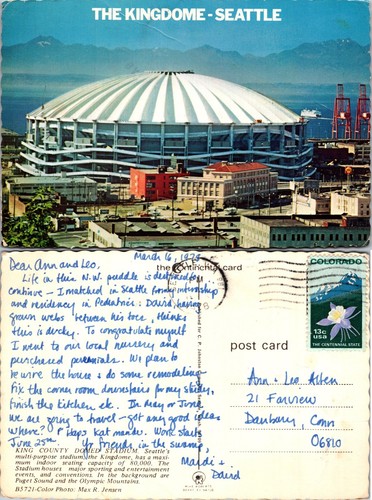 THE KINGDOME - SEATTLE
March 16, 1978
Dear Ann and Leo,
Life in this N.W. puddle is destined to
continue - I matched in Seattle for my internship
and residency in Pediatrics. David, having
grown webs between his toes, thinks
this is ducky. To congratulate myself
I went to our local nursery and
purchased perennials. We plan to
rewire the house & do some remodeling
fix the corner room downstairs for my study,
finish the kitchen etc. In May or June
we are going to travel - got any good ideas
where? Perhaps Katmandu. Work starts
June 25th. Yr friends in the swamp,
Mardi &
David
the continental card
post card
COLORADO
13c
usa
THE CENTENNIAL STATE
Ann & Leo
21 Fairview
Danbury, Conn
06810
KING COUNTY DOMED STADIUM. Seattle's
multi-purpose stadium, the Kingdome, has a maxi-
mum indoor seating capacity of 80,000. The
Stadium houses major sporting and entertainment
events, and conventions. In the background are
Puget Sound and the Olympic Mountains.
B5721-Color Photo: Max R. Jensen